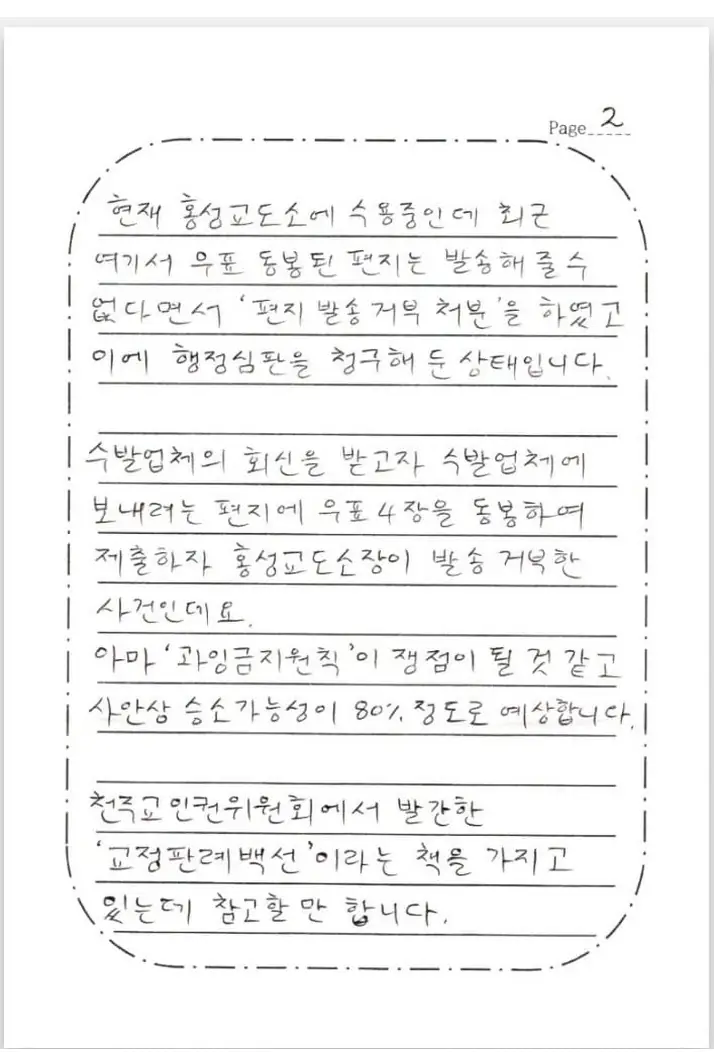 Page 2
현재 홍성교도소에 수용중인데 최근
여기서 우표 동봉된 편지는 발송해 줄 수
없다면서 '편지 발송 거부 처분'을 하였고
이에 행정심판을 청구해 둔 상태입니다.
수발업체의 회신을 받고자 수발업체에
보내려는 편지에 우표 4장을 동봉하여
제출하자 홍성교도소장이 발송 거부한
사건인데요.
아마 '과잉금지원칙'이 쟁점이 될 것 같고
사안상 승소가능성이 80% 정도로 예상합니다.
천주교인권위원회에서 발간한
'교정판례백선'이라는 책을 가지고
있는데 참고할 만 합니다.